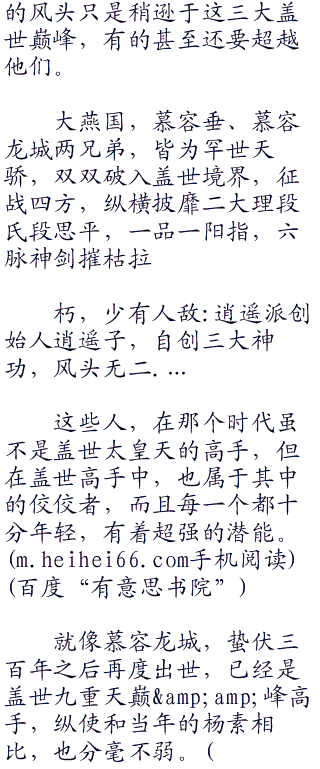 的风头只是稍逊于这三大盖
世巅峰，有的甚至还要超越
他们。
大燕国，慕容垂、慕容
龙城两兄弟，皆为罕世天
骄，双双破入盖世境界，征
战四方，纵横披靡二大理段
氏段思平，一品一阳指，六
脉神剑摧枯拉
朽，少有人敌:逍遥派创
始人逍遥子，自创三大神
功，风头无二. ...
这些人，在那个时代虽
不是盖世太皇天的高手，但
在盖世高手中，也属于其中
的佼佼者，而且每一个都十
分年轻，有着超强的潜能。
(m.heihei66.com手机阅读)
(百度“有意思书院”)
就像慕容龙城，蛰伏三
百年之后再度出世，已经是
盖世九重天巅&amp;amp;峰高
手，纵使和当年的杨素相
比，也分毫不弱。(